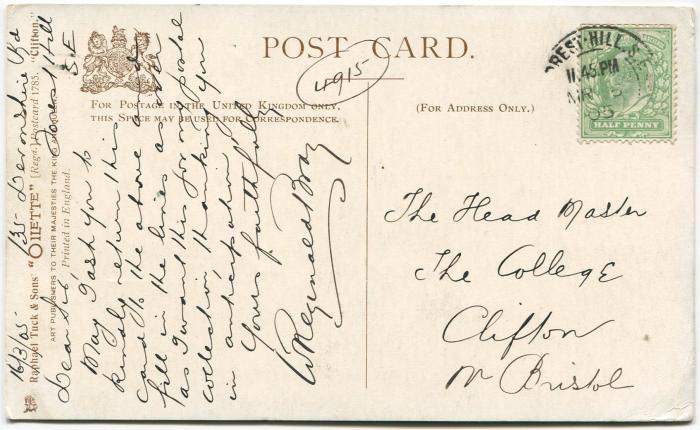 POST CARD.
4915
FOR POSTAGE IN THE UNITED KINGDOM ONLY,
THIS SPACE MAY BE USED FOR CORRESPONDENCE.
(FOR ADDRESS ONLY.)
FOREST-HILL. S.E.
11.45.PM
MR
05
HALF PENNY
The Head Master
The College
Clifton
Nr Bristol
Raphael Tuck & Sons' "OILETTE" [Regd.] Postcard 1785. "Clifton."
ART PUBLISHERS TO THEIR MAJESTIES THE KING AND QUEEN.
Printed in England.
16/3/05- 135- Devonshire Rd
Forest Hill
S.E
Dear Sir,
May I ask you to
kindly return this
card to the above and
fill in the lines as over
as I want this for my postal
collection thanking you
in anticipation
Yours faithfully
W Reginald Bray